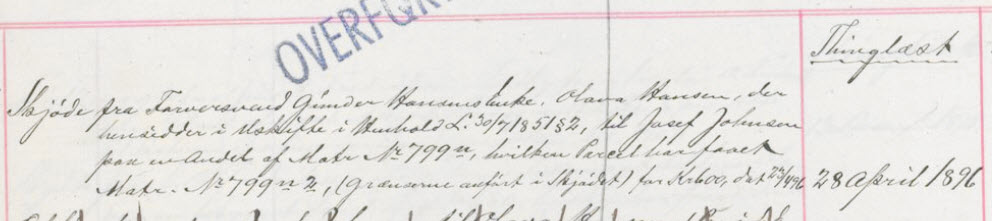 OVERFØR
Thinglæst
Skjøde fra Farversvend Gunder Hansens Enke, Olava Hansen, der
hensidder i Uskifte i Henhold L. 30/7 1851 § 2, til Josef Johnsen
paa en Andel af Matr Nr 799n, hvilken Parcel har faaet
Matr. Nr 799n2, (Grændserne anført i Skjødet) for Kr 600, dat 23/4 96
28 April 1896